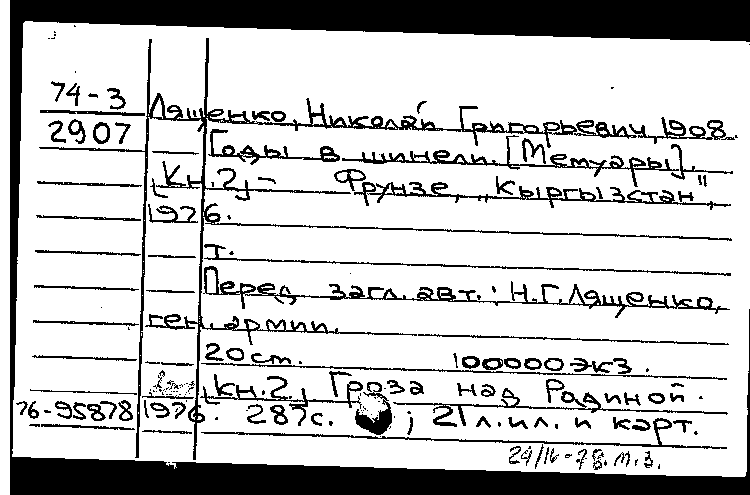 74-3
Лященко, Николай Григорьевич, 1908.
2907
Годы в шинели. [Мемуары].
[Кн.2] - Фрунзе, „Кыргызстан",
1976.
т.
Перед загл. авт.: Н.Г.Лященко,
ген. армии.
20 см. 100000 экз.
[кн.2] Гроза над Родиной.
76-95878 1976. 287с. ; 21 л.ил. и карт.